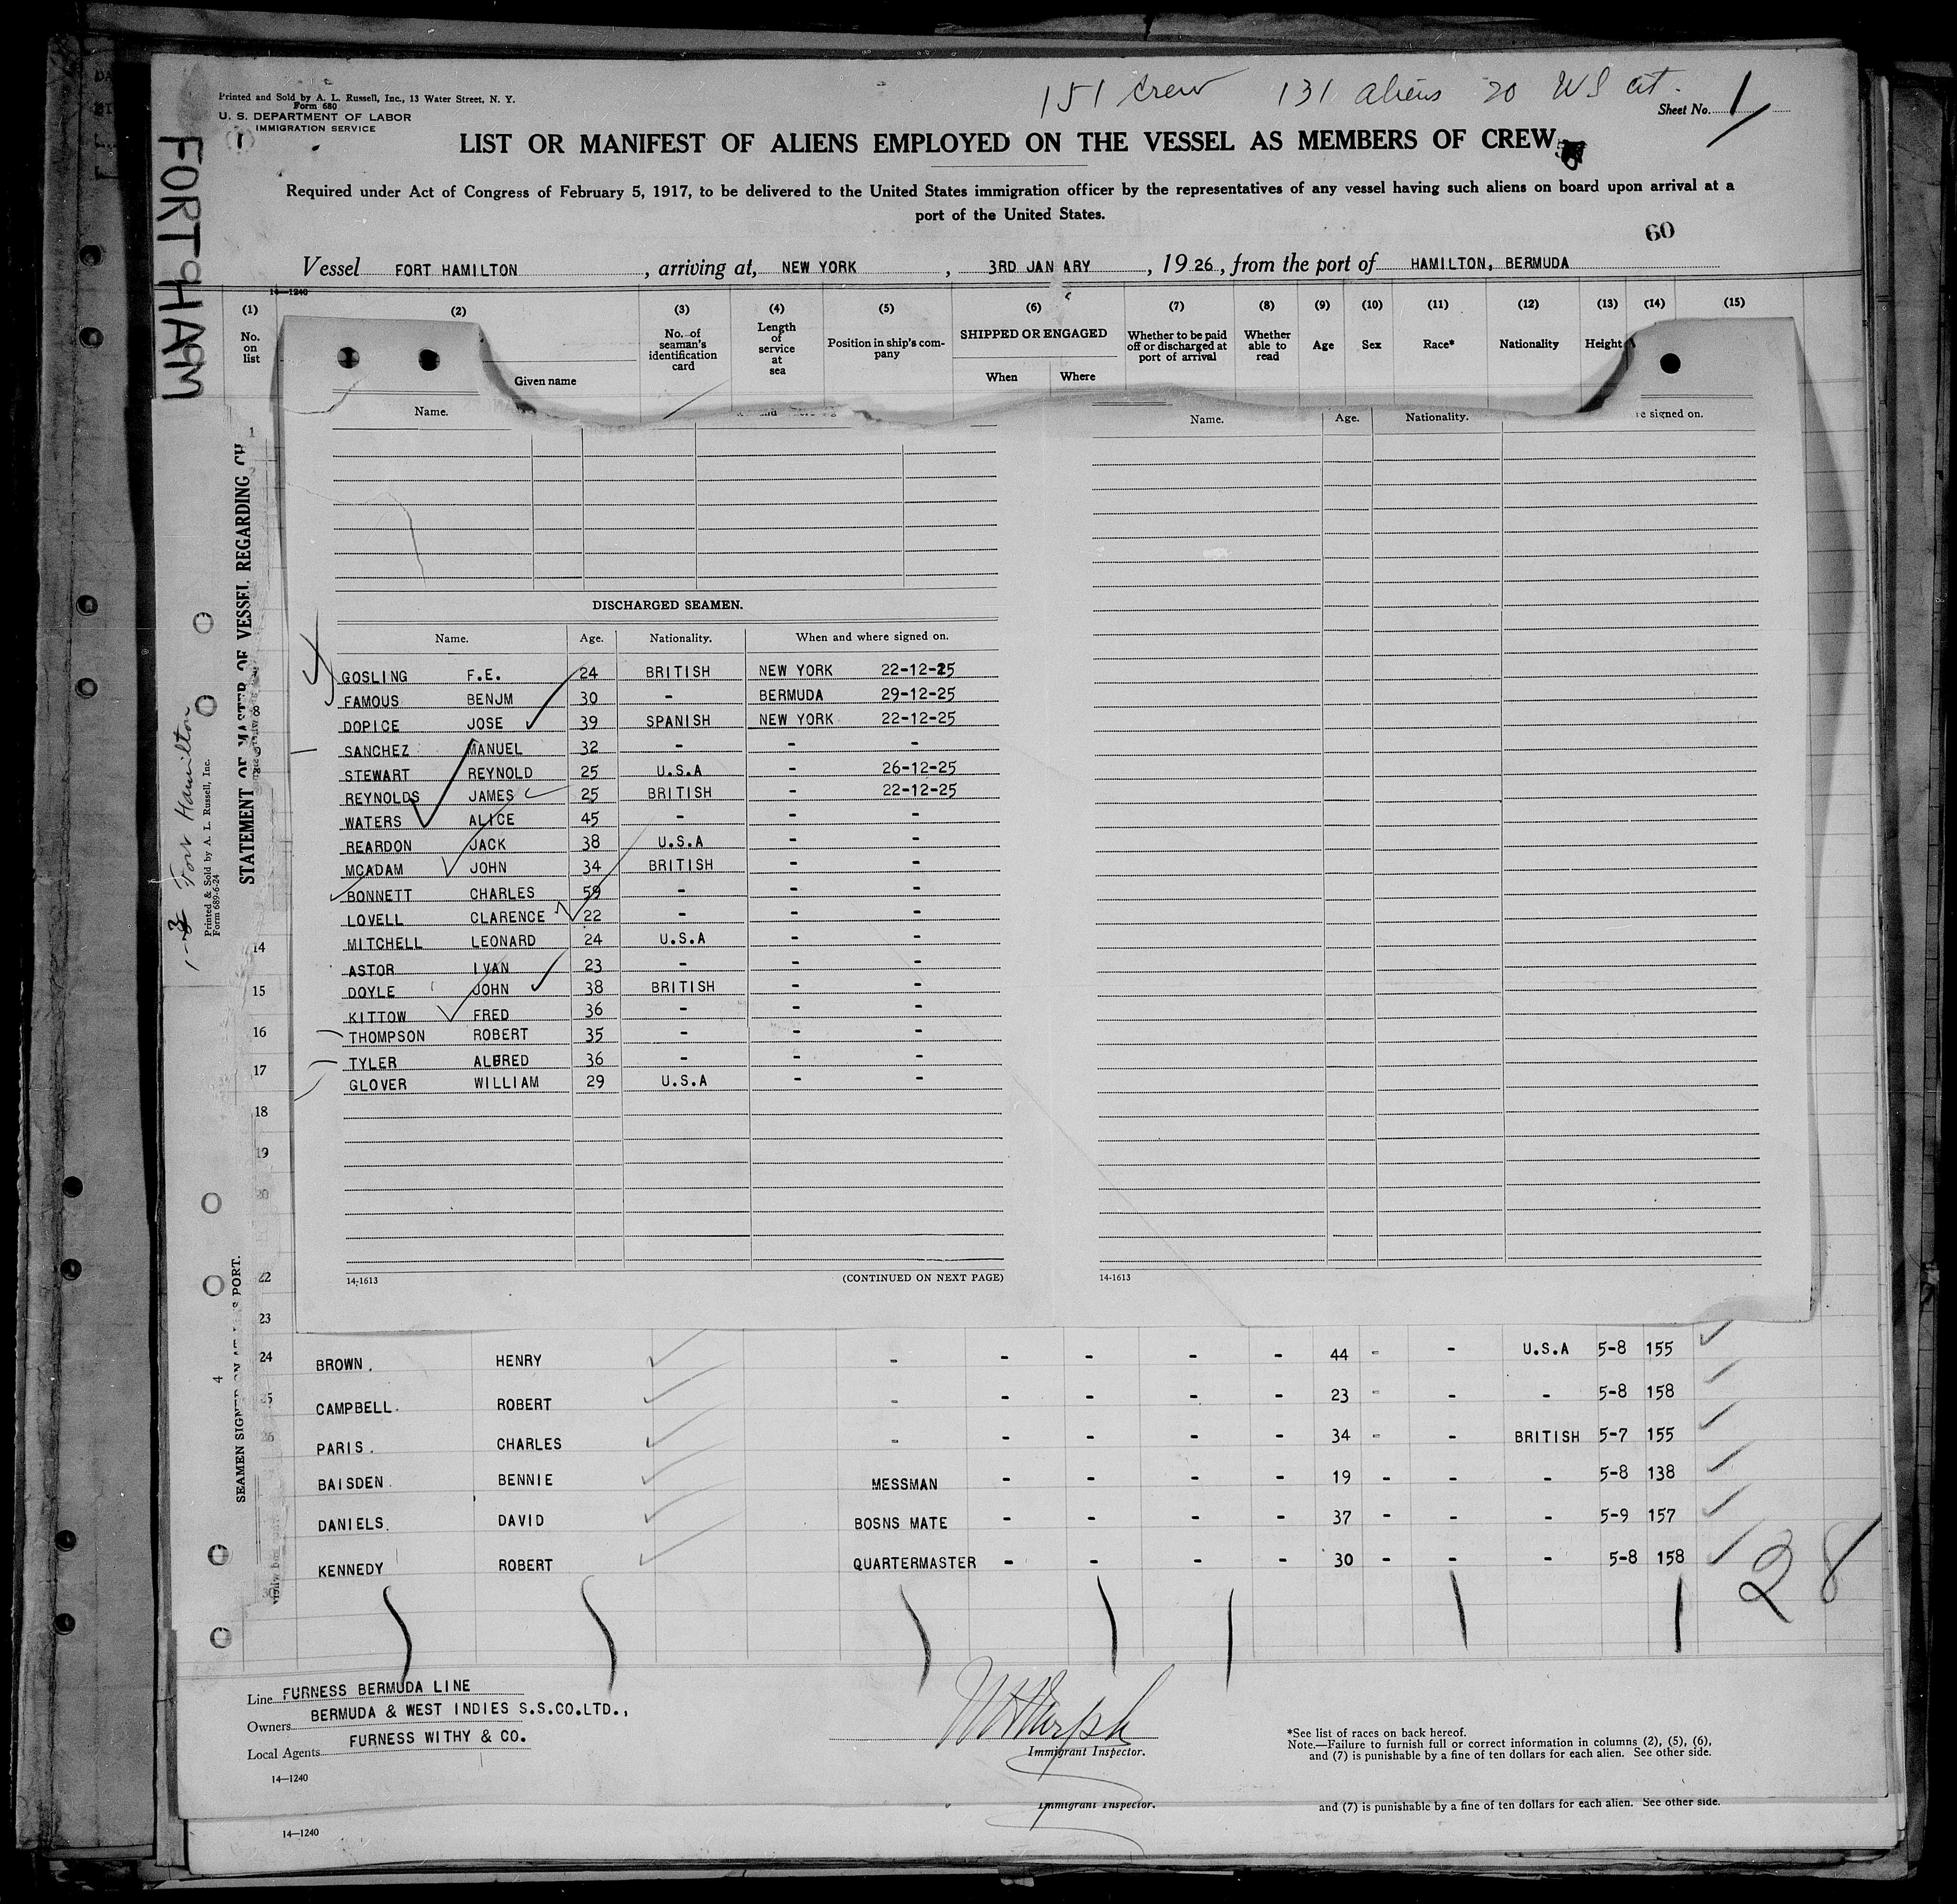 151 crew 131 aliens 20 US cit.
Printed and Sold by A. L. Russell, Inc., 13 Water Street, N. Y.
Form 680
U. S. DEPARTMENT OF LABOR
IMMIGRATION SERVICE
Sheet No. 1
LIST OR MANIFEST OF ALIENS EMPLOYED ON THE VESSEL AS MEMBERS OF CREW
Required under Act of Congress of February 5, 1917, to be delivered to the United States immigration officer by the representatives of any vessel having such aliens on board upon arrival at a
port of the United States.
60
FORT HAM
Vessel FORT HAMILTON, arriving at, NEW YORK, 3RD JAN ARY, 1926, from the port of HAMILTON, BERMUDA
14—1240
(1) (2) (3) (4) (5) (6) (7) (8) (9) (10) (11) (12) (13) (14) (15)
No. on list
Given name
No. of seaman's identification card
Length of service at sea
Position in ship's company
SHIPPED OR ENGAGED
When Where
Whether to be paid off or discharged at port of arrival
Whether able to read
Age
Sex
Race*
Nationality
Height
STATEMENT OF MASTER OF VESSEL REGARDING CH
1-3 Fort Hamilton
Printed & Sold by A. L. Russell, Inc.
Form 689-6-24
Name.
Name. Age. Nationality. re signed on.
DISCHARGED SEAMEN.
Name. Age. Nationality. When and where signed on.
GOSLING F.E. 24 BRITISH NEW YORK 22-12-25
FAMOUS BENJM 30 - BERMUDA 29-12-25
DOPICE JOSE 39 SPANISH NEW YORK 22-12-25
SANCHEZ MANUEL 32 - - -
STEWART REYNOLD 25 U.S.A - 26-12-25
REYNOLDS JAMES 25 BRITISH - 22-12-25
WATERS ALICE 45 - - -
REARDON JACK 38 U.S.A - -
MCADAM JOHN 34 BRITISH - -
BONNETT CHARLES 59 - - -
LOVELL CLARENCE 22 - - -
MITCHELL LEONARD 24 U.S.A - -
ASTOR IVAN 23 - - -
DOYLE JOHN 38 BRITISH - -
KITTOW FRED 36 - - -
THOMPSON ROBERT 35 - - -
TYLER ALBRED 36 - - -
GLOVER WILLIAM 29 U.S.A - -
1
14
15
16
17
18
19
20
22
23
14-1613 (CONTINUED ON NEXT PAGE)
14-1613
SEAMEN SIGNED ON AT THIS PORT.
4
24 BROWN. HENRY - - - - - 44 - - U.S.A 5-8 155
25 CAMPBELL. ROBERT - - - - - 23 - - - 5-8 158
26 PARIS. CHARLES - - - - - 34 - - BRITISH 5-7 155
BAISDEN. BENNIE MESSMAN - - - - 19 - - - 5-8 138
DANIELS. DAVID BOSNS MATE - - - - 37 - - - 5-9 157
KENNEDY ROBERT QUARTERMASTER - - - - 30 - - - 5-8 158
28
Line FURNESS BERMUDA LINE
Owners BERMUDA & WEST INDIES S.S.CO.LTD.,
Local Agents FURNESS WITHY & CO.
14—1240
Immigrant Inspector.
*See list of races on back hereof.
Note.—Failure to furnish full or correct information in columns (2), (5), (6),
and (7) is punishable by a fine of ten dollars for each alien. See other side.
Immigrant Inspector.
and (7) is punishable by a fine of ten dollars for each alien. See other side.
14—1240